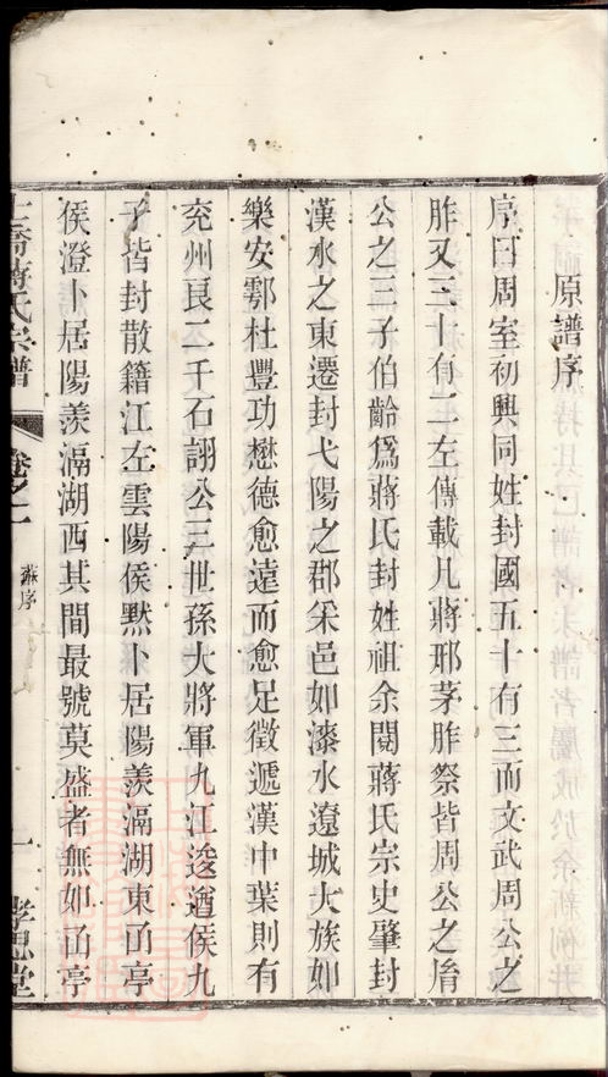 原譜序
序曰周室初興同姓封國五十有三而文武周公之
胙又三十有二左傳載凡蔣邢茅胙祭皆周公之胤
公之三子伯齡爲蔣氏封姓祖余閱蔣氏宗史肇封
漢水之東遷封弋陽之郡采邑如漆水遼城大族如
樂安鄠杜豐功懋德愈遠而愈足徵遞漢中葉則有
兖州良二千石詡公三世孫大將軍九江逡遒侯九
子皆封散籍江左雲陽侯默卜居陽羨滆湖東㓊亭
侯澄卜居陽羨滆湖西其間最號莫盛者無如㓊亭
喬蔣氏宗譜 卷之一 蘇序 一 孝思堂